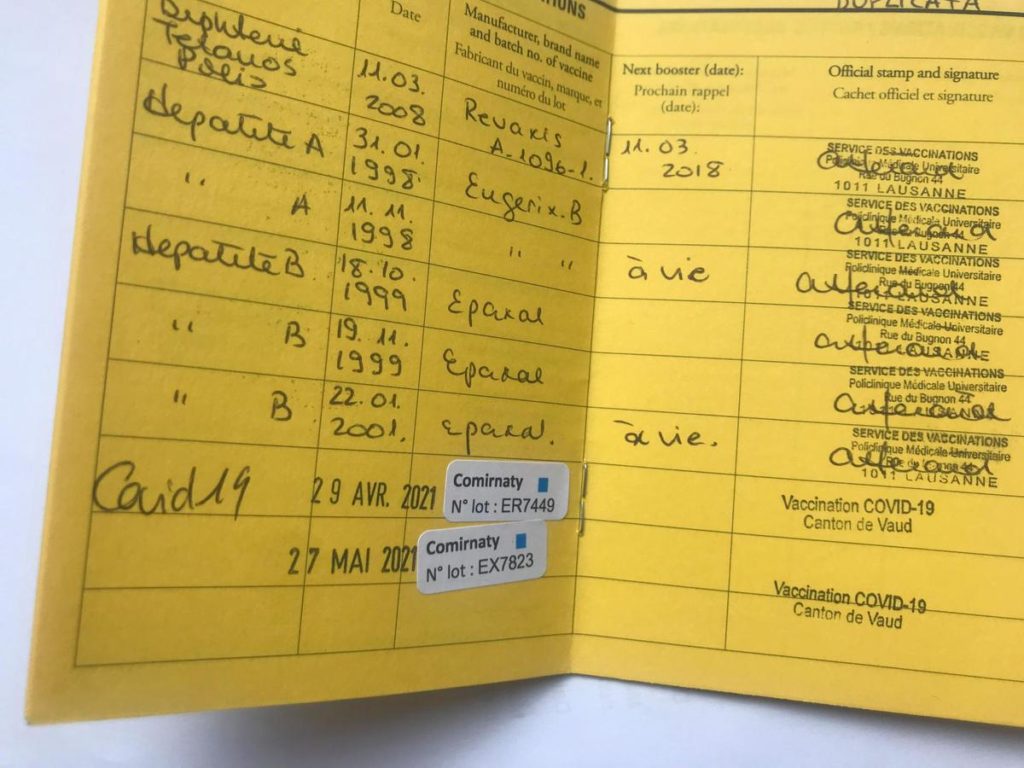 ATIONS
DUPLICATA
Date
Manufacturer, brand name
and batch no. of vaccine
Fabricant du vaccin, marque, et
numéro du lot
Next booster (date):
Prochain rappel
(date):
Official stamp and signature
Cachet officiel et signature
Diphterie
Tetanos
Polio
11.03.
2008
Revaxis
A-1096-1.
11.03
2018
SERVICE DES VACCINATIONS
Policlinique Médicale Universitaire
Rue du Bugnon 44
1011 LAUSANNE
Hepatite A
31.01.
1998
Engerix-B
SERVICE DES VACCINATIONS
Policlinique Médicale Universitaire
Rue du Bugnon 44
1011 LAUSANNE
" A
11.11.
1998
" "
à vie
SERVICE DES VACCINATIONS
Policlinique Médicale Universitaire
Rue du Bugnon 44
1011 LAUSANNE
Hepatite B
18.10.
1999
Epaxal
SERVICE DES VACCINATIONS
Policlinique Médicale Universitaire
Rue du Bugnon 44
LAUSANNE
" B
19.11.
1999
Epaxal
SERVICE DES VACCINATIONS
Policlinique Médicale Universitaire
Rue du Bugnon 44
LAUSANNE
" B
22.01.
2001.
Epaxal.
à vie.
SERVICE DES VACCINATIONS
Policlinique Médicale Universitaire
Rue du Bugnon 44
1011 LAUSANNE
Covid19
29 AVR. 2021
Comirnaty
N° lot : ER7449
Vaccination COVID-19
Canton de Vaud
27 MAI 2021
Comirnaty
N° lot : EX7823
Vaccination COVID-19
Canton de Vaud